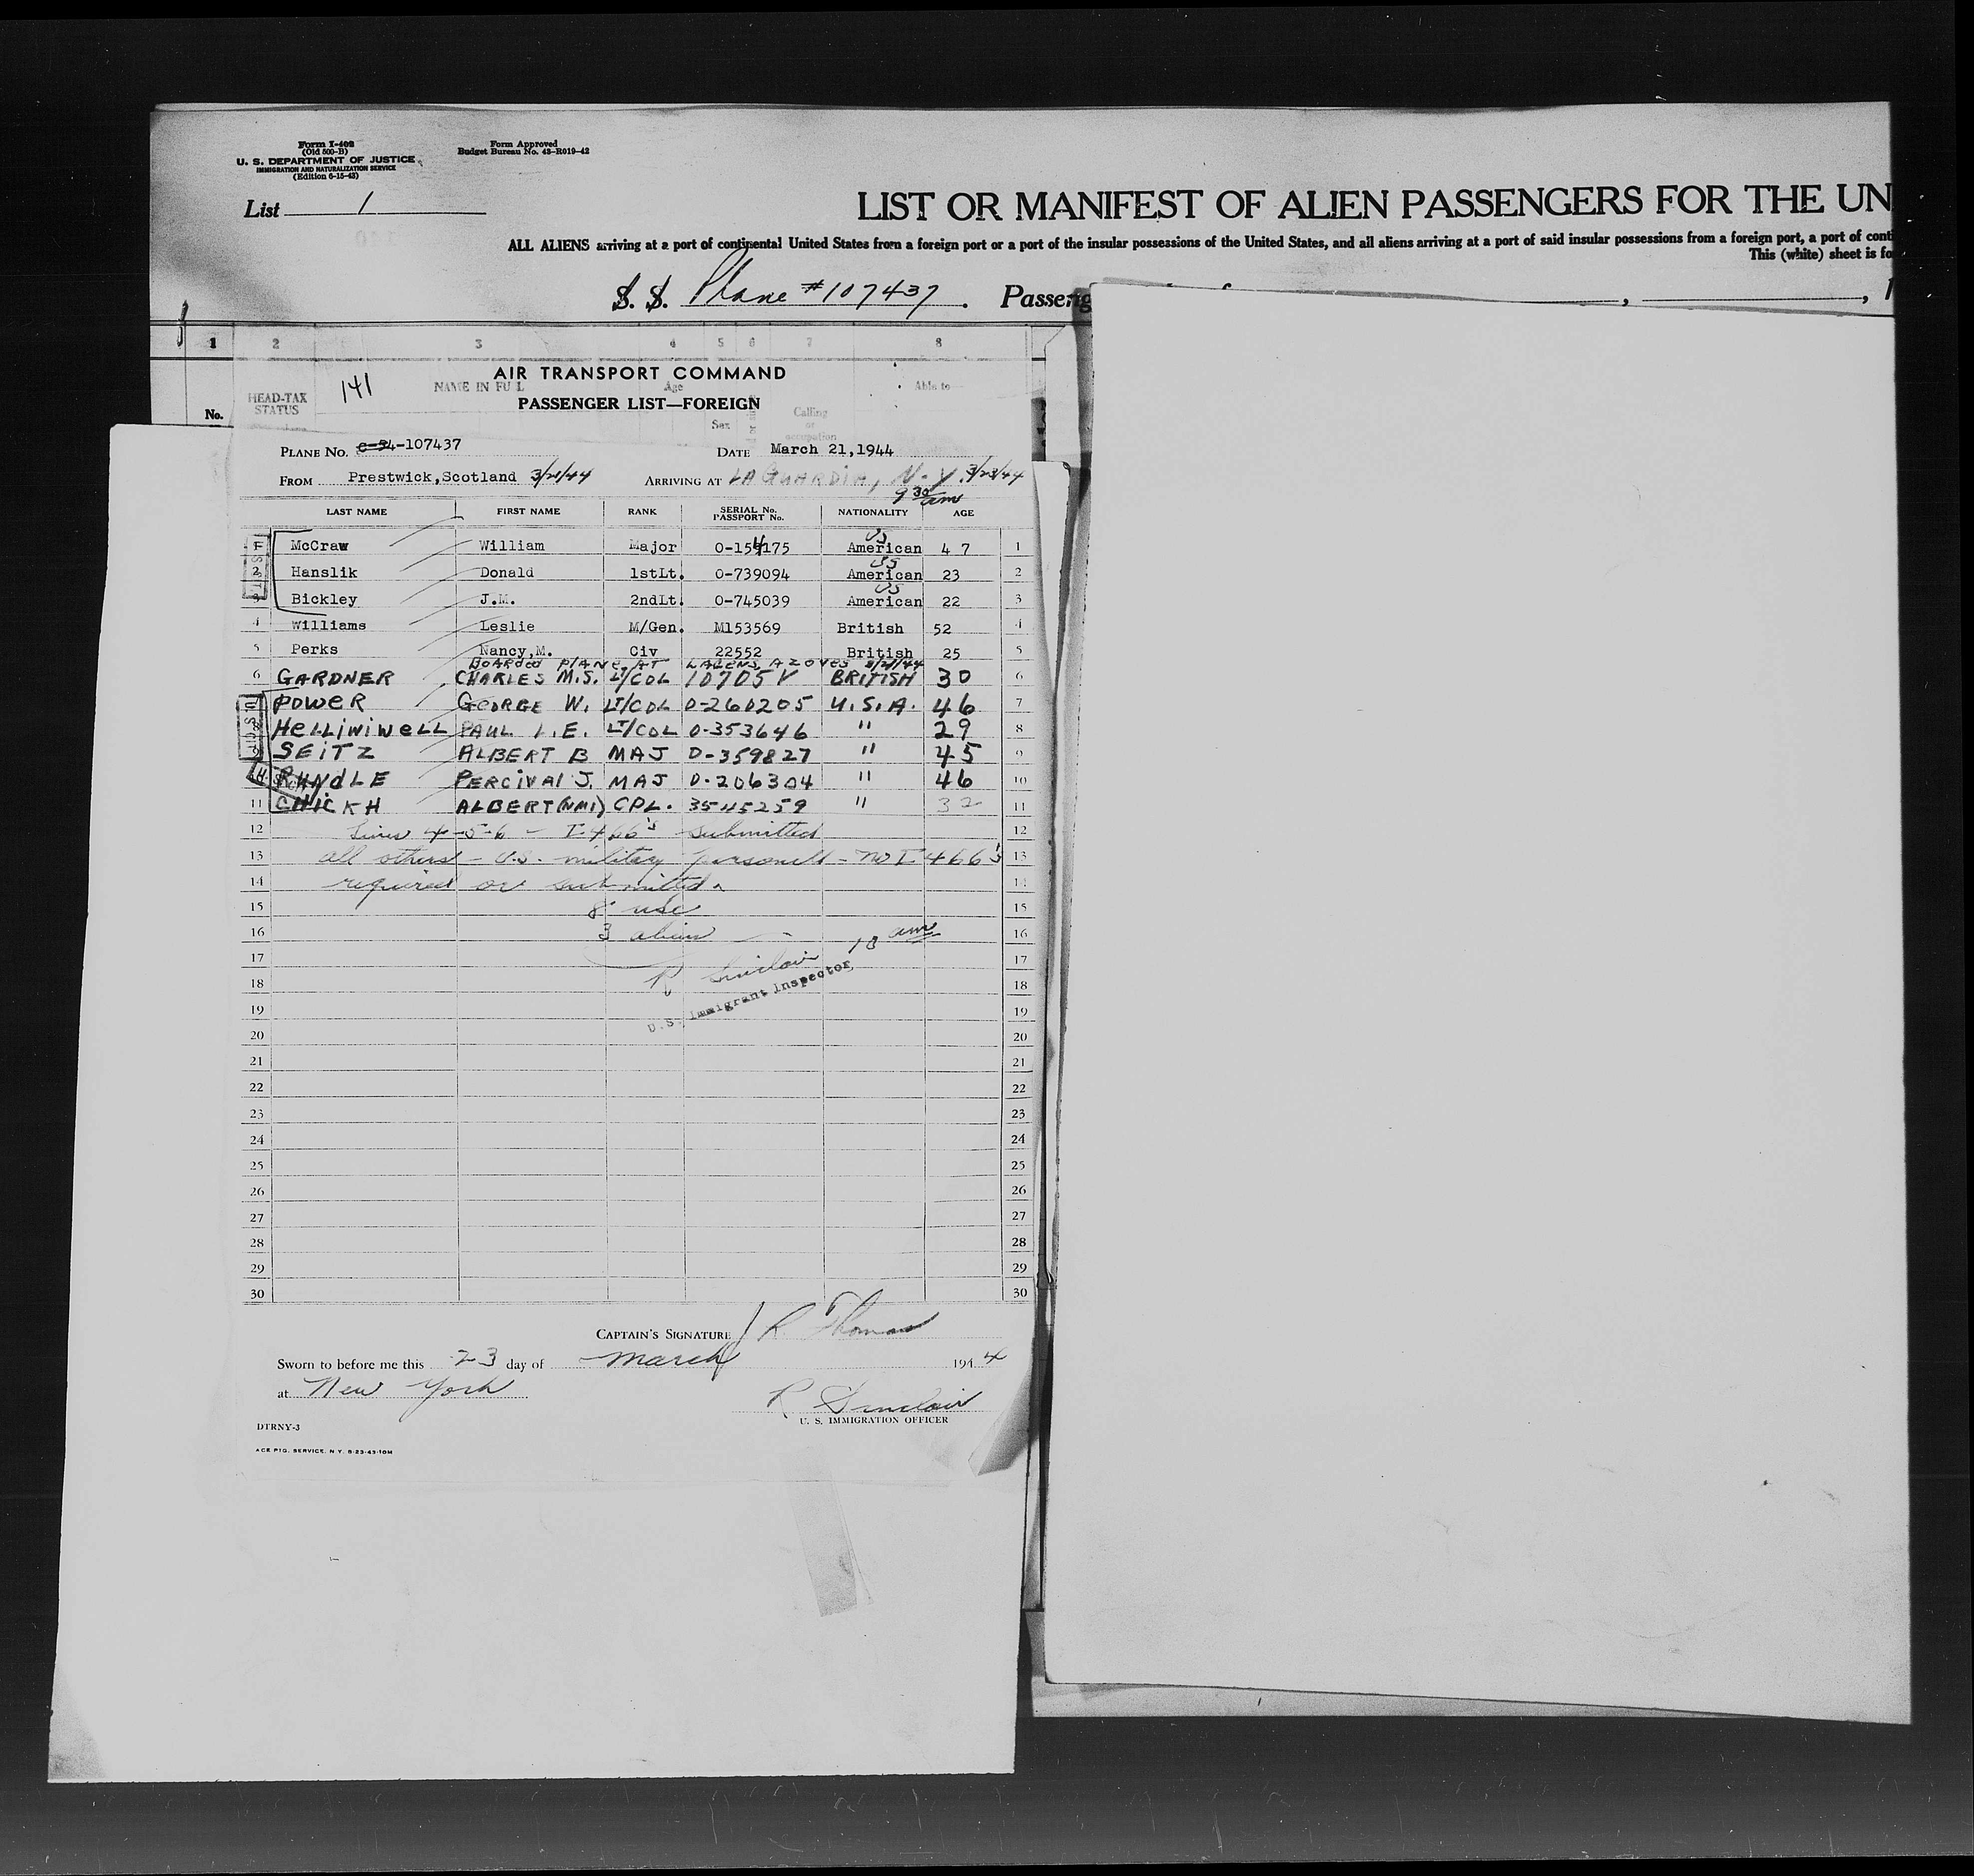 Form I-402
(Old 500-B)
U. S. DEPARTMENT OF JUSTICE
IMMIGRATION AND NATURALIZATION SERVICE
(Edition 6-15-43)
Form Approved
Budget Bureau No. 43-R019-42
List 1
LIST OR MANIFEST OF ALIEN PASSENGERS FOR THE UN
ALL ALIENS arriving at a port of continental United States from a foreign port or a port of the insular possessions of the United States, and all aliens arriving at a port of said insular possessions from a foreign port, a port of conti
This (white) sheet is fo
S. S. Plane #107437. Passeng , , 1
1 2 3 4 5 6 7 8
AIR TRANSPORT COMMAND
141 NAME IN FULL Age Able to
No. HEAD-TAX STATUS
PASSENGER LIST—FOREIGN
Sex Calling or occupation
PLANE No. c-54-107437 DATE March 21,1944
FROM Prestwick,Scotland 3/21/44 ARRIVING AT LAGUARDIA, N.Y. 3/23/44
9 30 am
LAST NAME FIRST NAME RANK SERIAL No. PASSPORT No. NATIONALITY AGE
US
1 McCraw William Major 0-154175 American 4 7 1
US
2 Hanslik Donald 1stLt. 0-739094 American 23 2
US
3 Bickley J.M. 2ndLt. 0-745039 American 22 3
4 Williams Leslie M/Gen. M153569 British 52 4
5 Perks Nancy,M. Civ 22552 British 25 5
BOARded PlANe AT LAGENS, AZOVES 3/21/44
6 GARDNER CHARLES M.S. LT/COL 10705V BRITISH 30 6
7 POWER GEORGE W. LT/COL O-260205 U.S.A. 46 7
8 HeLLiWiWeLL PAUL L.E. LT/COL O-353646 " 29 8
9 SEITZ ALBERT B MAJ O-359827 " 45 9
10 RUNdLE PERCIVAl J. MAJ O-206304 " 46 10
11 CHICKH ALBERT(NMI) CPL. 35415259 " 32 11
12 Lines 4-5-6 - I-466's submitted 12
13 all others - U.S. military personell - no I 466's 13
14 required or submitted. 14
15 8 usc 15
16 3 alien 16
10 am
17 R Sinclair 17
18 U.S. Immigrant Inspector 18
19 19
20 20
21 21
22 22
23 23
24 24
25 25
26 26
27 27
28 28
29 29
30 30
CAPTAIN'S SIGNATURE R. Thomas
Sworn to before me this 23 day of March 1944
at New York
R Sinclair
U. S. IMMIGRATION OFFICER
DTRNY-3
ACE PTG. SERVICE, N.Y. 8-23-43-10M